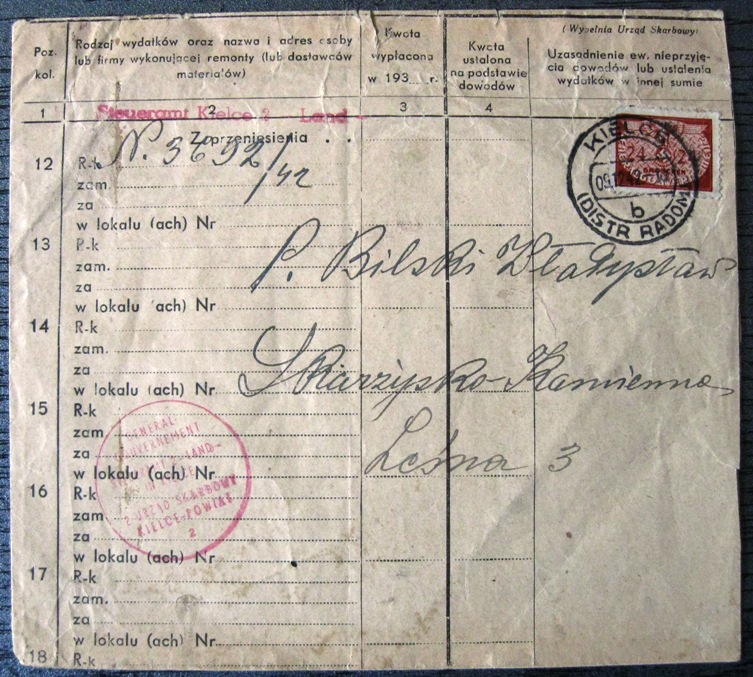 Poz. kol.
Rodzaj wydatków oraz nazwa i adres osoby lub firmy wykonującej remonty (lub dostawców materiałów)
Kwota wypłacona w 193 r.
Kwota ustalona na podstawie dowodów
(Wypełnia Urząd Skarbowy)
Uzasadnienie ew. nieprzyjęcia dowodów lub ustalenia wydatków w innej sumie
1 2 3 4
Steueramt Kielce 2 Land-
Z przeniesienia
N. 3692/42
KIELCE
b
(DISTR RADOM)
24 24
12 R-k
zam.
za
w lokalu (ach) Nr
13 R-k
zam.
za
w lokalu (ach) Nr
P. Bilski Władysław
14 R-k
zam.
za
w lokalu (ach) Nr
Skarżysko-Kamienna
15 R-k
zam
za
w lokalu (ach) Nr
Leśna 3
GENERAL-
GOUVERNEMENT
2 URZĄD SKARBOWY
KIELCE-POWIAT
2
16 R-k
zam
za
w lokalu (ach) Nr
17 R-k
zam.
za
w lokalu (ach) Nr
18 R-k